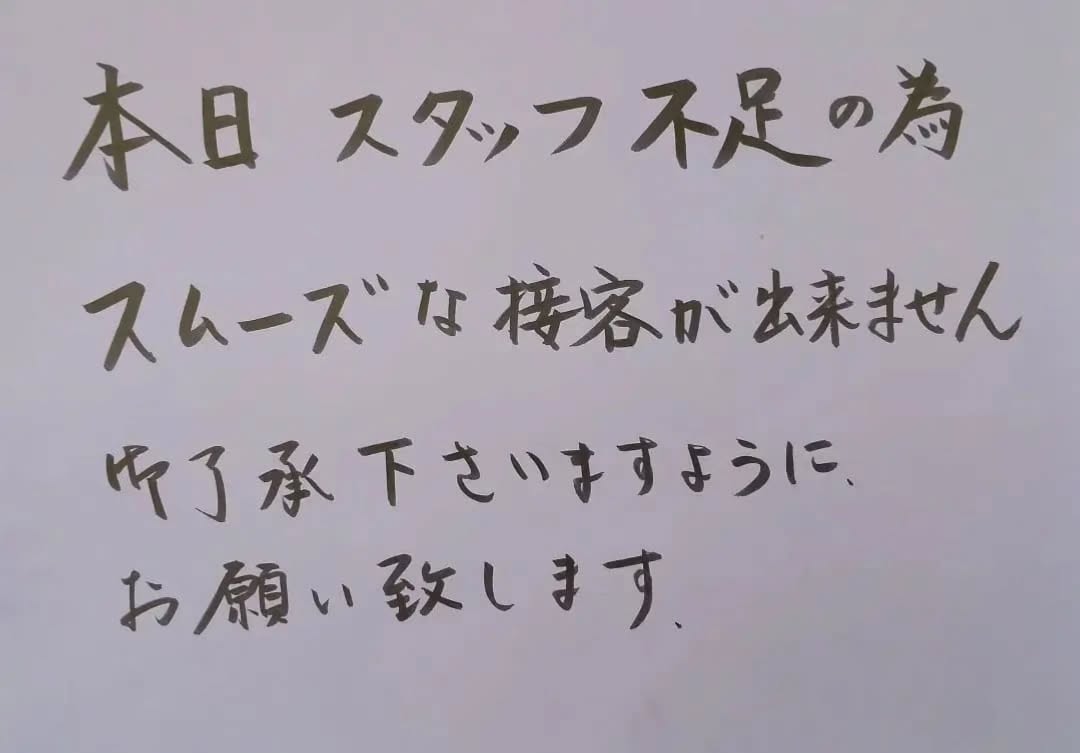 本日 スタッフ不足の為
スムーズな接客が出来ません
御了承下さいますように、
お願い致します、